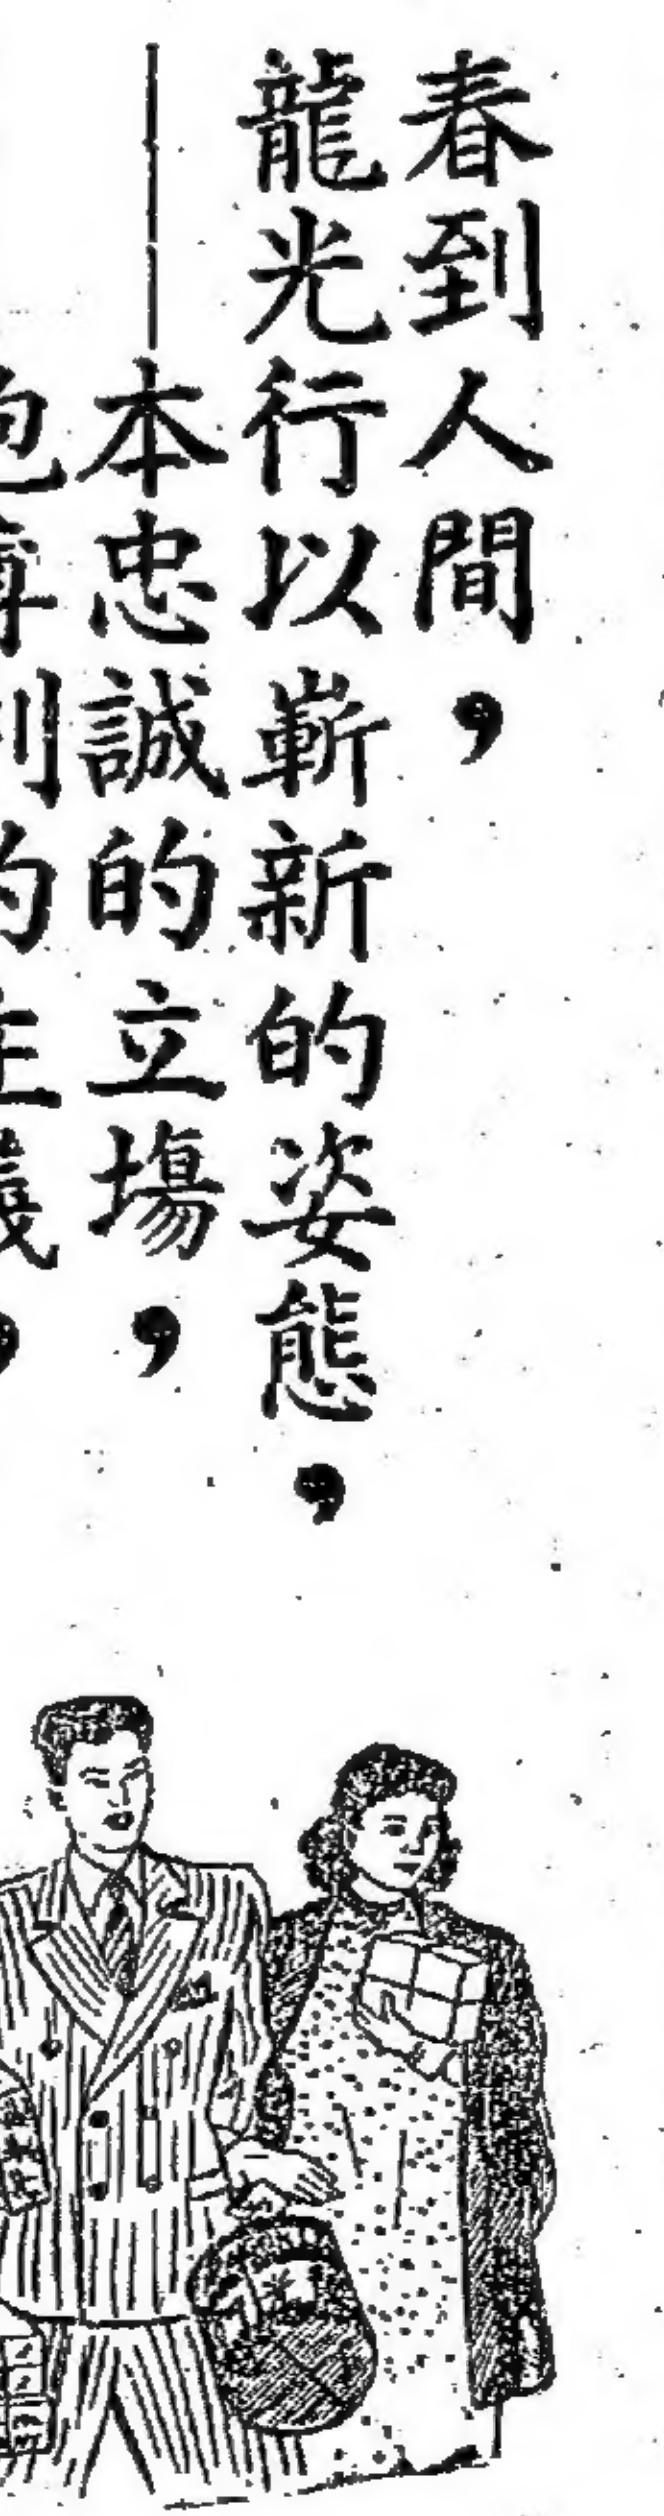 春到人間，
龍光行以嶄新的姿態，
——本忠誠的立場，